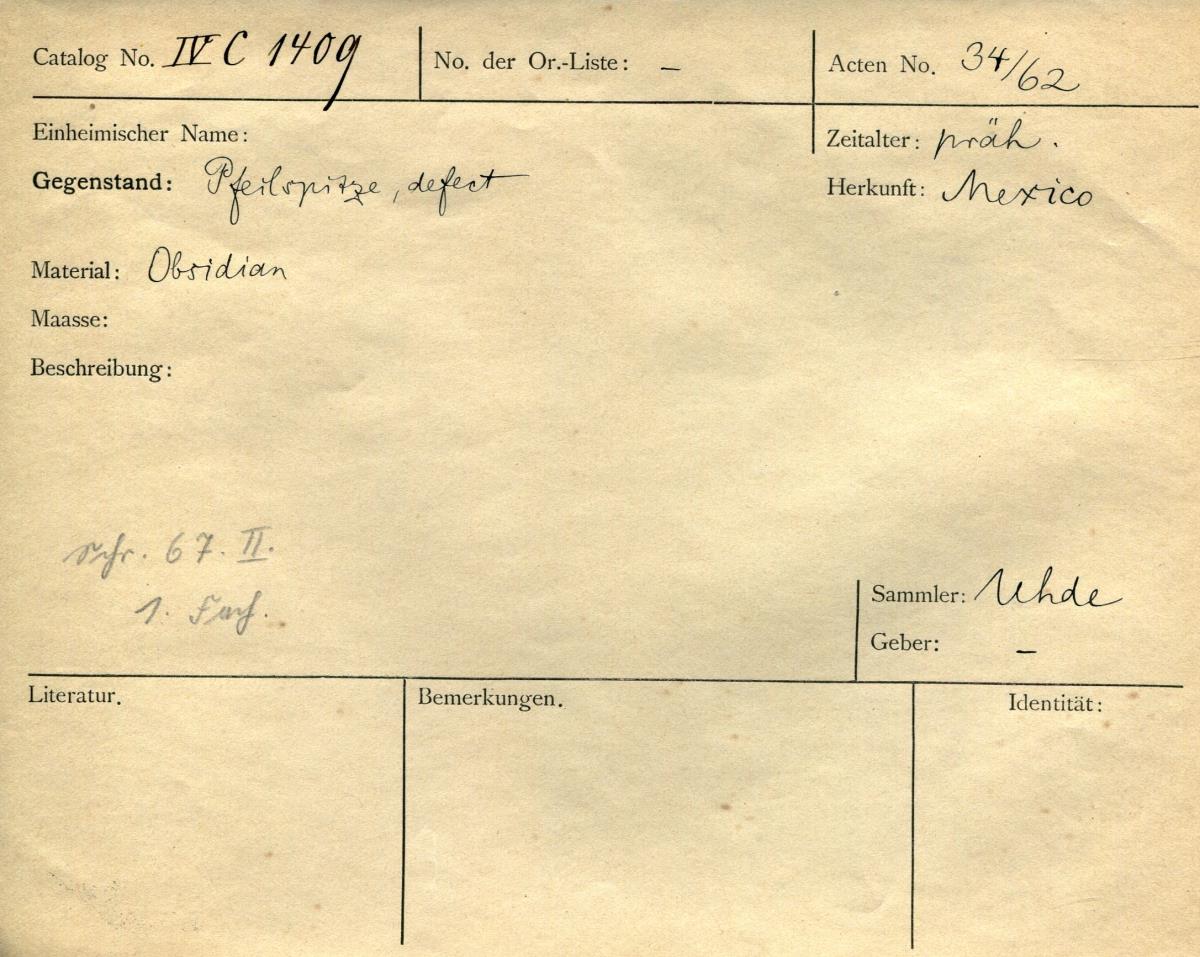 Catalog No. IV C 1409
No. der Or.-Liste: –
Acten No. 34/62
Einheimischer Name:
Zeitalter: präh.
Gegenstand: Pfeilspitze, defect
Herkunft: Mexico
Material: Obsidian
Maasse:
Beschreibung:
Schr. 67. II.
1. Fach.
Sammler: Uhde
Geber: –
Literatur.
Bemerkungen.
Identität: